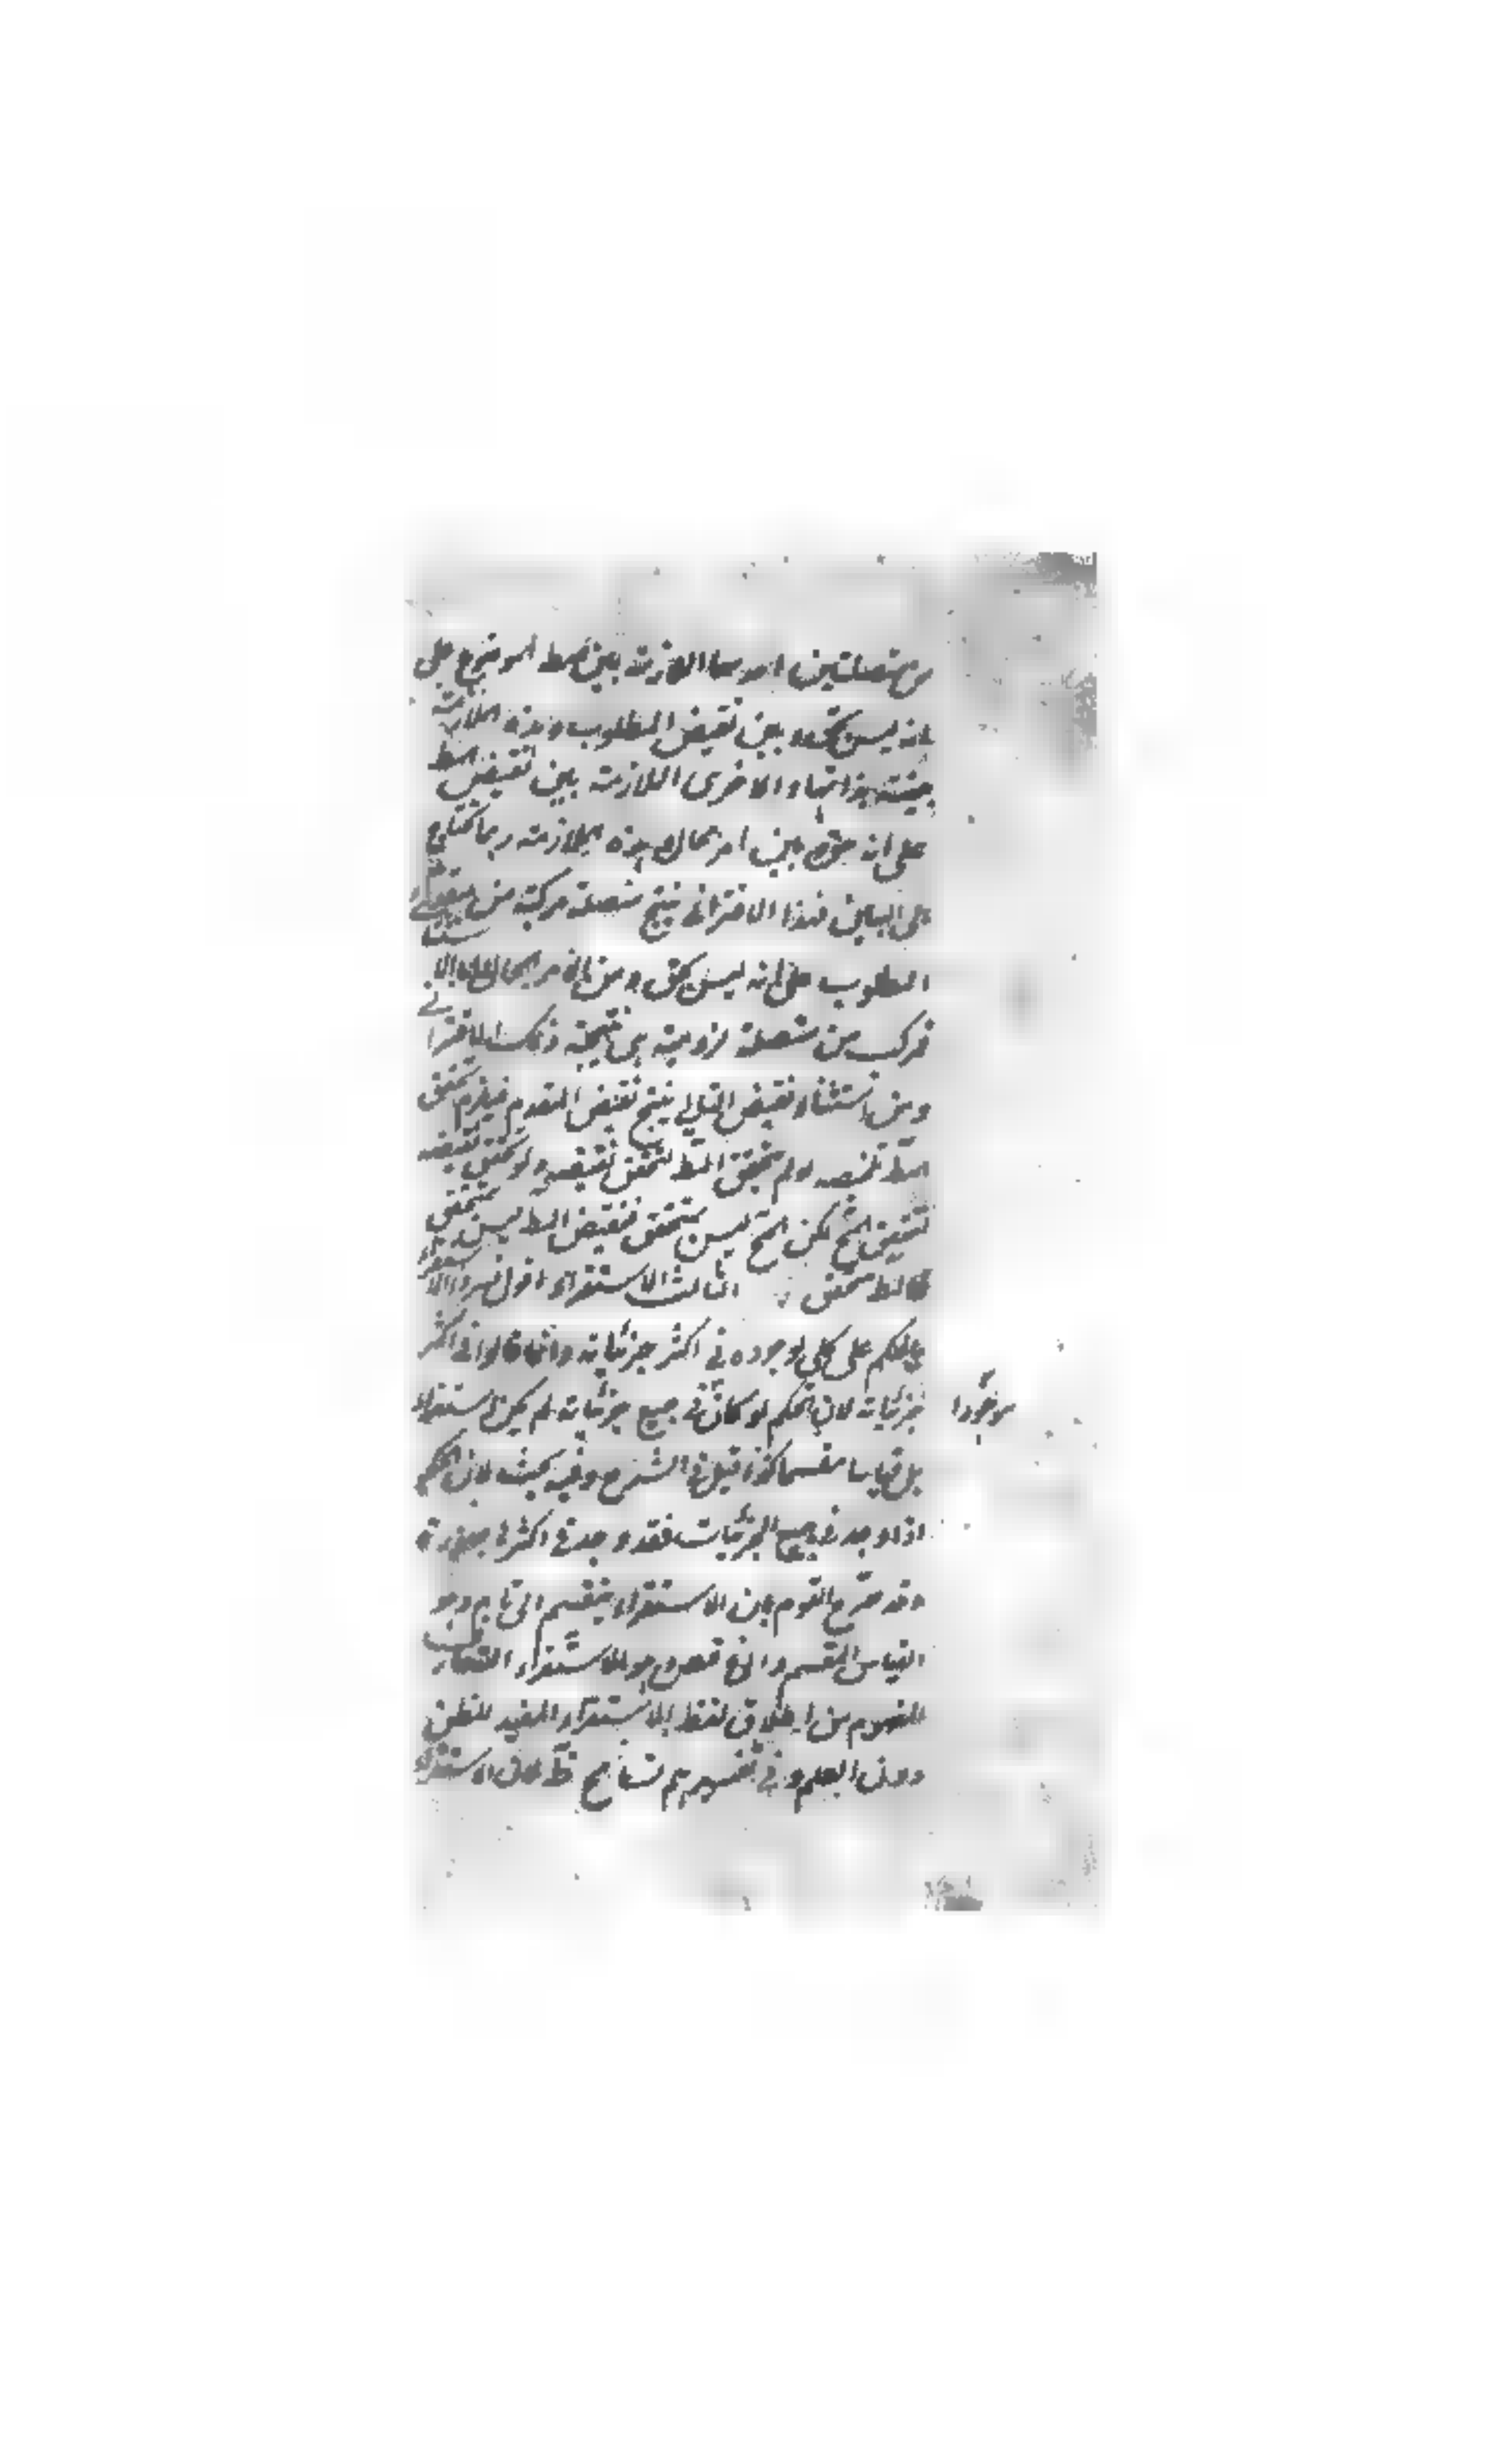 من متصلتين احدهما الملازمة بين المط الموضوع على
انه ليس بحق وبين نقيض المطلوب وهذه الملازمة
بينة بذاتها والاخرى الملازمة بين نقيض المط
على انه حق وبين امر محال وهذه الملازمة ربما تحتاج
الى البيان فهذا الاقتراني ينتج متصلة مركبة من
المطلوب على انه ليس بحق ومن الامر المحال
فمركب من متصلة لزومية هي نتيجة ذلك الاقتراني
ومن استثناء نقيض التالي ينتج نقيض المقدم فيلزم تحقق
المط تلخيصه لو لم يتحقق المط لتحقق نقيضه ولو تحقق نقيضه
لتحقق المح لكن المح ليس بمتحقق فنقيض المط ليس بمتحقق
فالمط متحقق الثالث الاستقراء اقول
بالحكم على كلي لوجوده في اكثر جزئياته وانما قالوا في اكثر
جزئياته لان الحكم لو كان في جميع جزئياته لم يكن استقراء
موجودا
بل قياسا مقسما كذا قيل في الشرح وفيه بحث لان الحكم
اذا وجد في جميع الجزئيات فقد وجد في اكثرها ضرورة
وقد صرح القوم بان الاستقراء ينقسم الى تام وهو
القياس المقسم والى ناقص وهو الاستقراء
المفهوم من اطلاق لفظ الاستقراء المفيد للظن
دون العلم وفي تفسيرهم تسامح لان الاستقراء